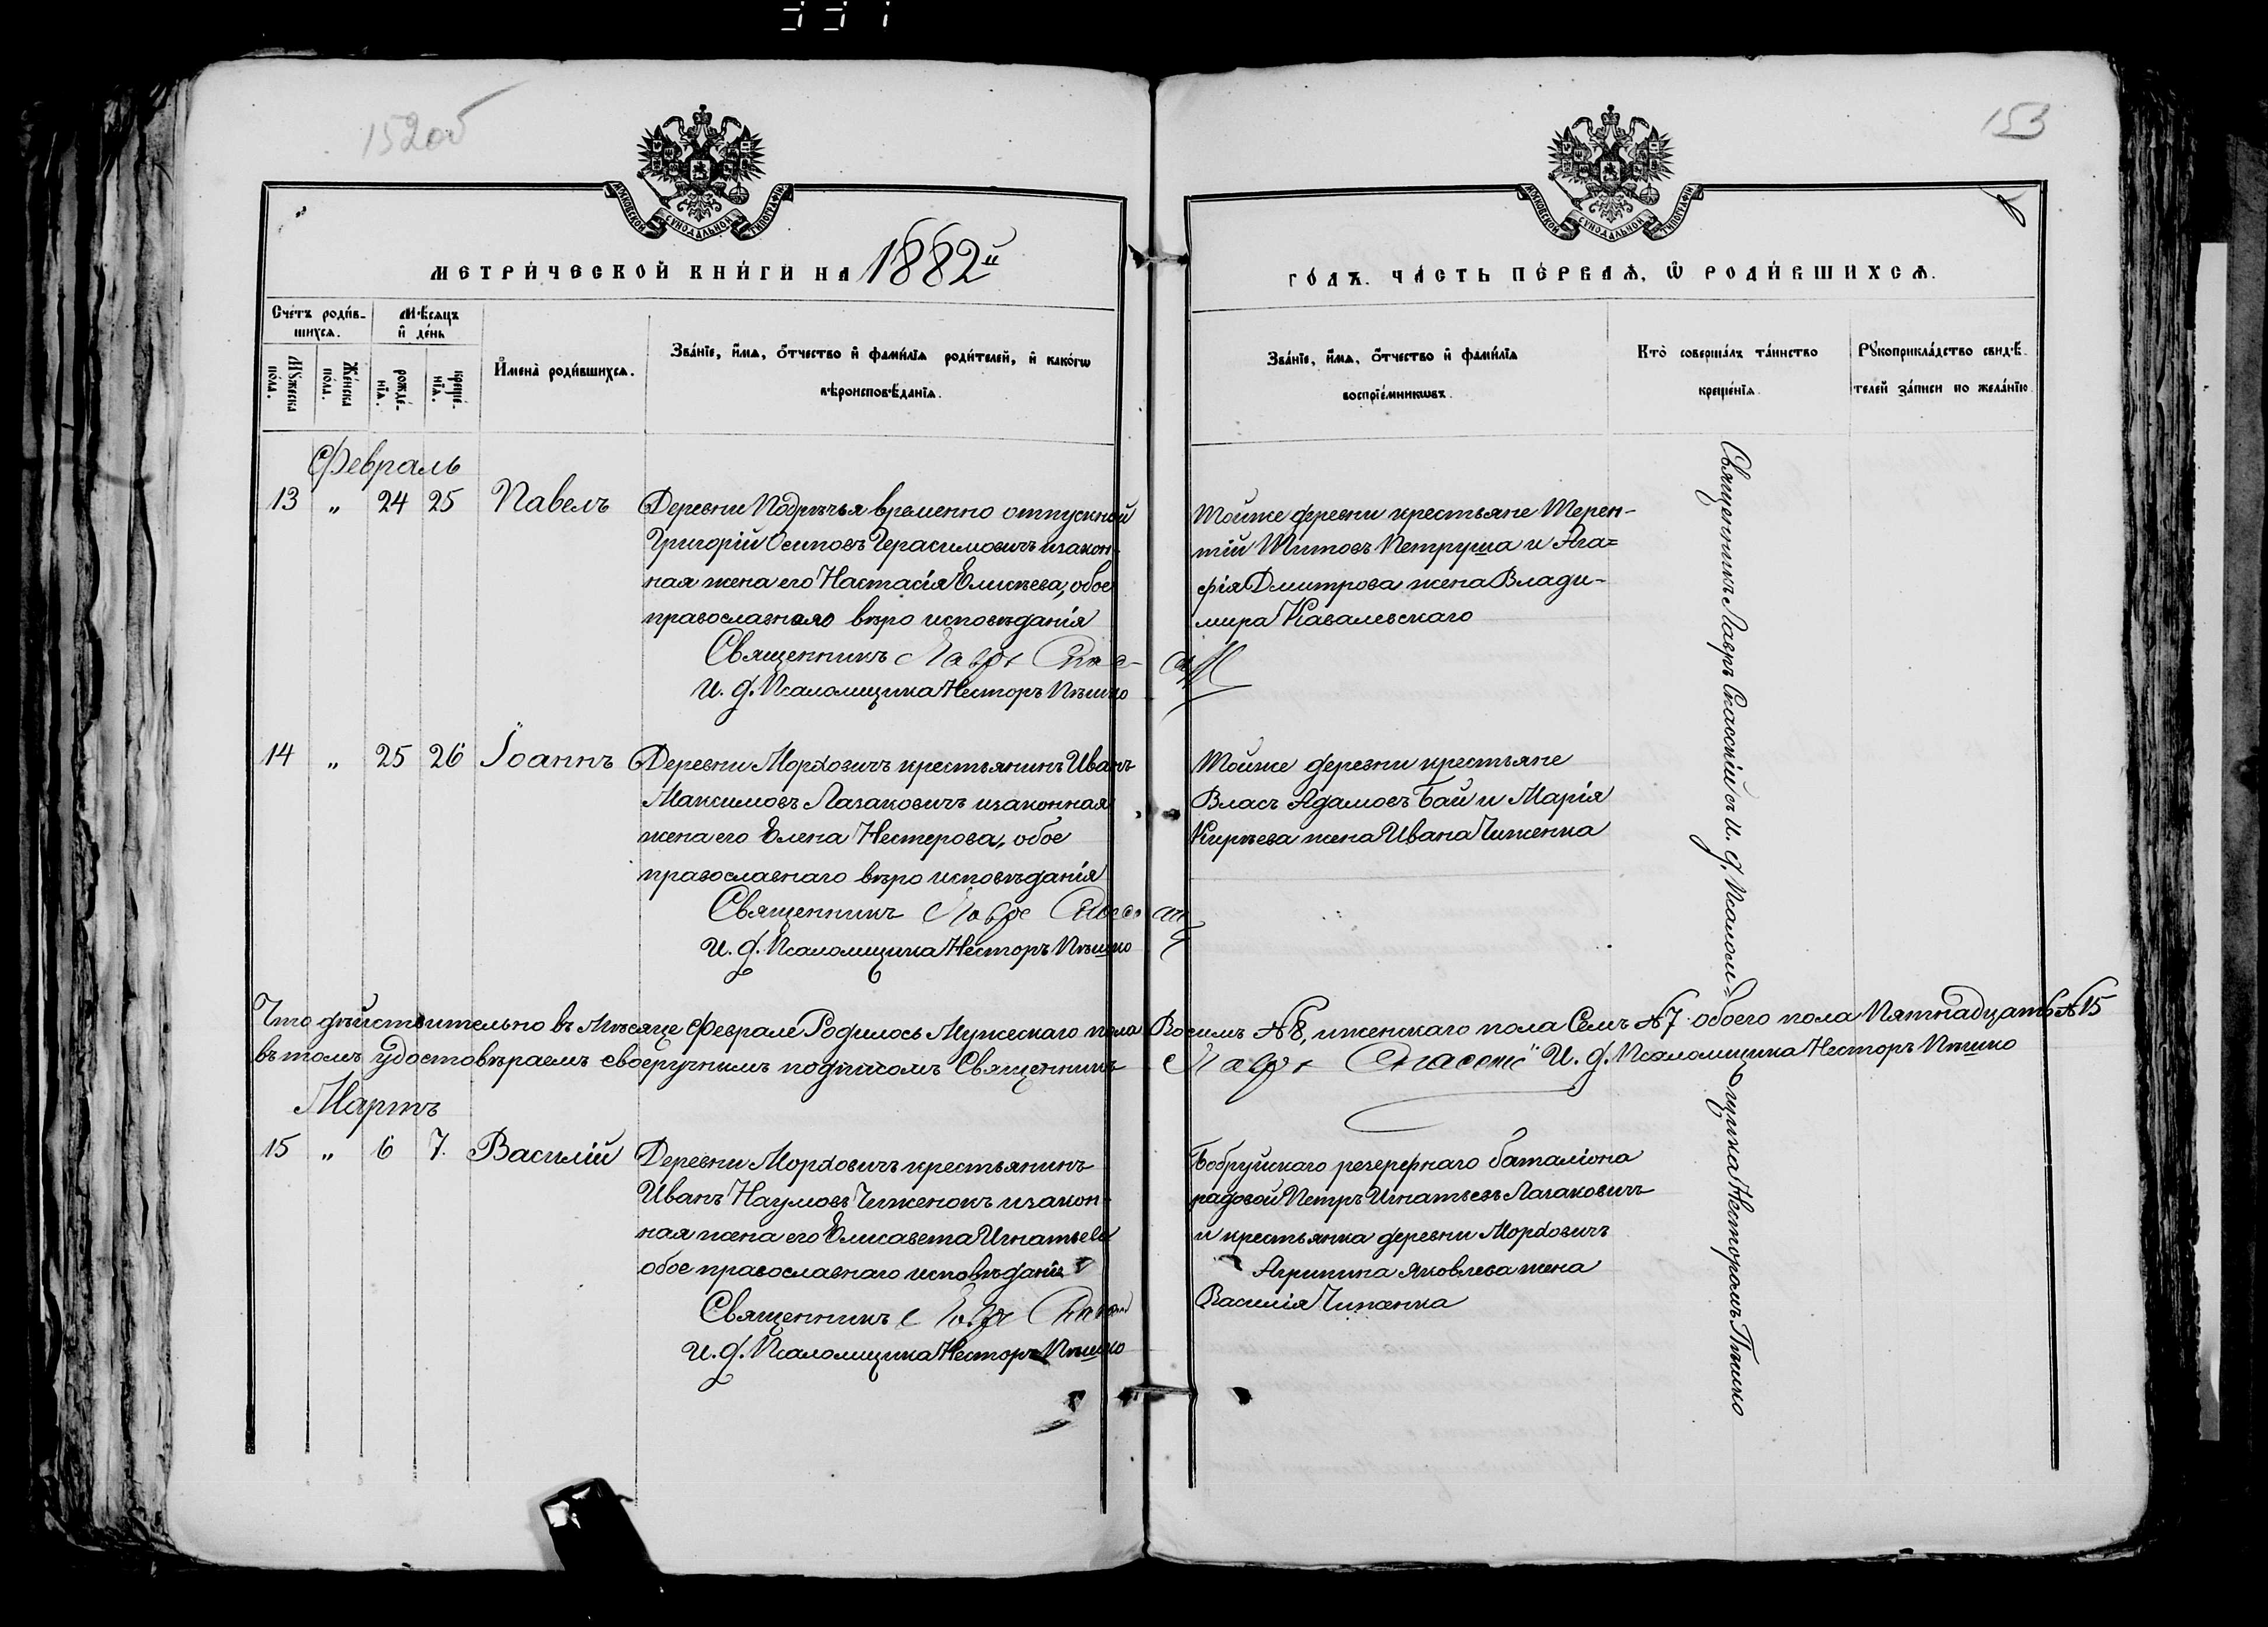 152об
153
МОСКОВСКОЙ СѴНОДАЛЬНОЙ ТИПОГРАФІИ
МОСКОВСКОЙ СѴНОДАЛЬНОЙ ТИПОГРАФІИ
МЕТРИ́ЧЕСКОЙ КНИ́ГИ НА 1882й
ГО́ДЪ. ЧА́СТЬ ПЕ́РВАѦ, Ѡ҆ РОДИ́ВШИХСѦ.
Сче́тъ роди́в-
шихсѧ.
Мѣ́сѧцъ
и҆ де́нь
Мꙋ́жеска
по́ла.
Же́нска
по́ла.
рожде́-
нїѧ.
креще́-
нїѧ.
И҆мена̀ роди́вшихсѧ.
Зва́нїе, и҆́мѧ, ѻ҆́тчество и҆ фамн́лїѧ роди́телей, и҆ како́гѡ
вѣроисповѣ́данїѧ.
Зва́нїе, и҆́мѧ, ѻ҆́тчество и҆ фами́лїѧ
воспрїе́мникѡвъ.
Кто̀ соверша́лъ та́инство
креще́нїѧ.
Рꙋкоприкла́дство свидѣ́-
телей за́писи по жела́нїю
Февраль
13 „ 24 25 Павелъ Деревни Подрѣчья временно отпускной
Григорій Осиповъ Герасимовичъ изакон-
ная жена его Настасія Елисѣева, обое
православнаго вѣро исповѣданія
Священникъ Лавръ Спас-
И. д. Псаломщика Несторъ Пѣшко
Тойже деревни крестьяне Терен-
тій Титовъ Петруша и Ага=
фія Дмитрова жена Влади-
мира Кавалевскаго
14 „ 25 26 Іоаннъ Деревни Мордовичъ крестьянинъ Иванъ
Максимовъ Лазаковичъ изаконная
жена его Елена Нестерова, обое
православнаго вѣро исповѣданія
Священникъ Лавръ
И. д. Псаломщика Несторъ Пѣшко
Тойже деревни крестьяне
Власъ Адамовъ Бай и Марія
Кирѣева жена Ивана Чиженка
Что дѣйствительно въ Мѣсяце Феврале Родилось Мужескаго пола Восимъ №8, иженскаго пола Семь №7 обоего пола Пятнадцать №15
въ томъ удостовѣраемъ своеручнымъ подписомъ Священникъ Лавръ Спасскій И. д. Псаломщика Несторъ Пѣшко
Мартъ
15 „ 6 7. Василій Деревни Мордовичъ крестьянинъ
Иванъ Наумовъ Чиженокъ изакон-
ная жена его Елисавета Игнатьева
обое православнаго исповѣданія
Священникъ Лавръ
И. д. Псаломщика Несторъ Пѣшко
Бобруйскаго резерфнаго баталіона
радовой Петръ Игнатьевъ Лазаковичъ
и крестьянка деревни Мордовичъ
Агрипина Яковлева жена
Василія Чиженка
Священникъ Лавръ Спасскій съ И. д. Псалом=
щика Несторомъ Пѣшко